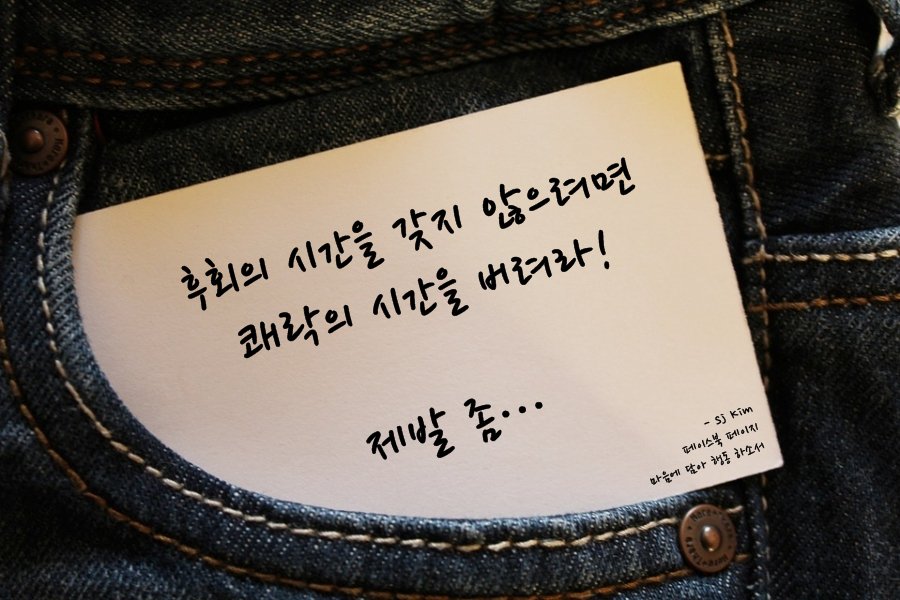 후회의 시간을 갖지 않으려면
쾌락의 시간을 버려라!
제발 좀...
- Sj Kim
페이스북 페이지
마음에 담아 행동 하소서